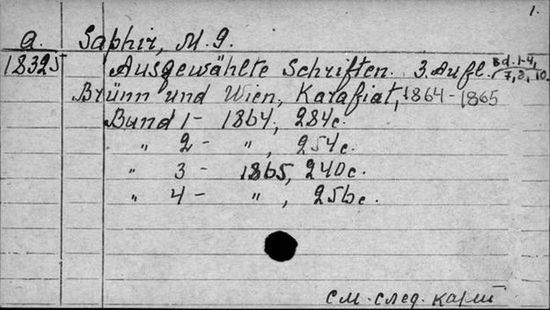 1.
a. Saphir, M. G.
18325 Ausgewählte Schriften. 3. Aufl. Bd. 1-4, 7, 8, 10.
Brünn und Wien, Karafiat, 1864-1865
Band 1 - 1864, 284c.
„ 2 - „, 254c.
„ 3 - 1865, 240c.
„ 4 - „, 256c.
см. след. карт